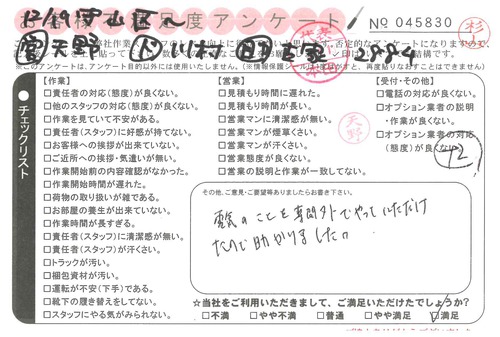 度アンケート
No 045830
チェックリスト
【作業】
□責任者の対応(態度)が良くない。
□他のスタッフの対応(態度)が良くない。
□作業を見ていて不安がある。
□責任者(スタッフ)に好感が持てない。
□お客様への挨拶が出来ていない。
□ご近所への挨拶・気遣いが無い。
□作業開始前の内容確認がなかった。
□作業開始時間が遅れた。
□荷物の取り扱いが雑である。
□お部屋の養生が出来ていない。
□作業時間が長すぎる。
□責任者(スタッフ)に清潔感が無い。
□責任者(スタッフ)が汗くさい。
□トラックが汚い。
□梱包資材が汚い。
□運転が不安(下手)である。
□靴下の履き替えをしてない。
□スタッフにやる気がみられない。
【営業】
□見積もり時間に遅れた。
□見積もり時間が長い。
□営業マンに清潔感が無い。
□営業マンが煙草くさい。
□営業マンが汗くさい。
□営業態度が良くない。
□営業の説明と作業が一致してない。
【受付・その他】
□電話の対応が良くない。
□オプション業者の説明
・作業が良くない。
□オプション業者の対応
(態度)が良くない。
12
天野
その他、ご意見・ご要望等ありましたらお書き下さい。
電気のことを専門外でやっていただけ
たので助かりました。
☆当社をご利用いただきまして、ご満足いただけたでしょうか?
□不満 □やや不満 □普通 □やや満足 □満足